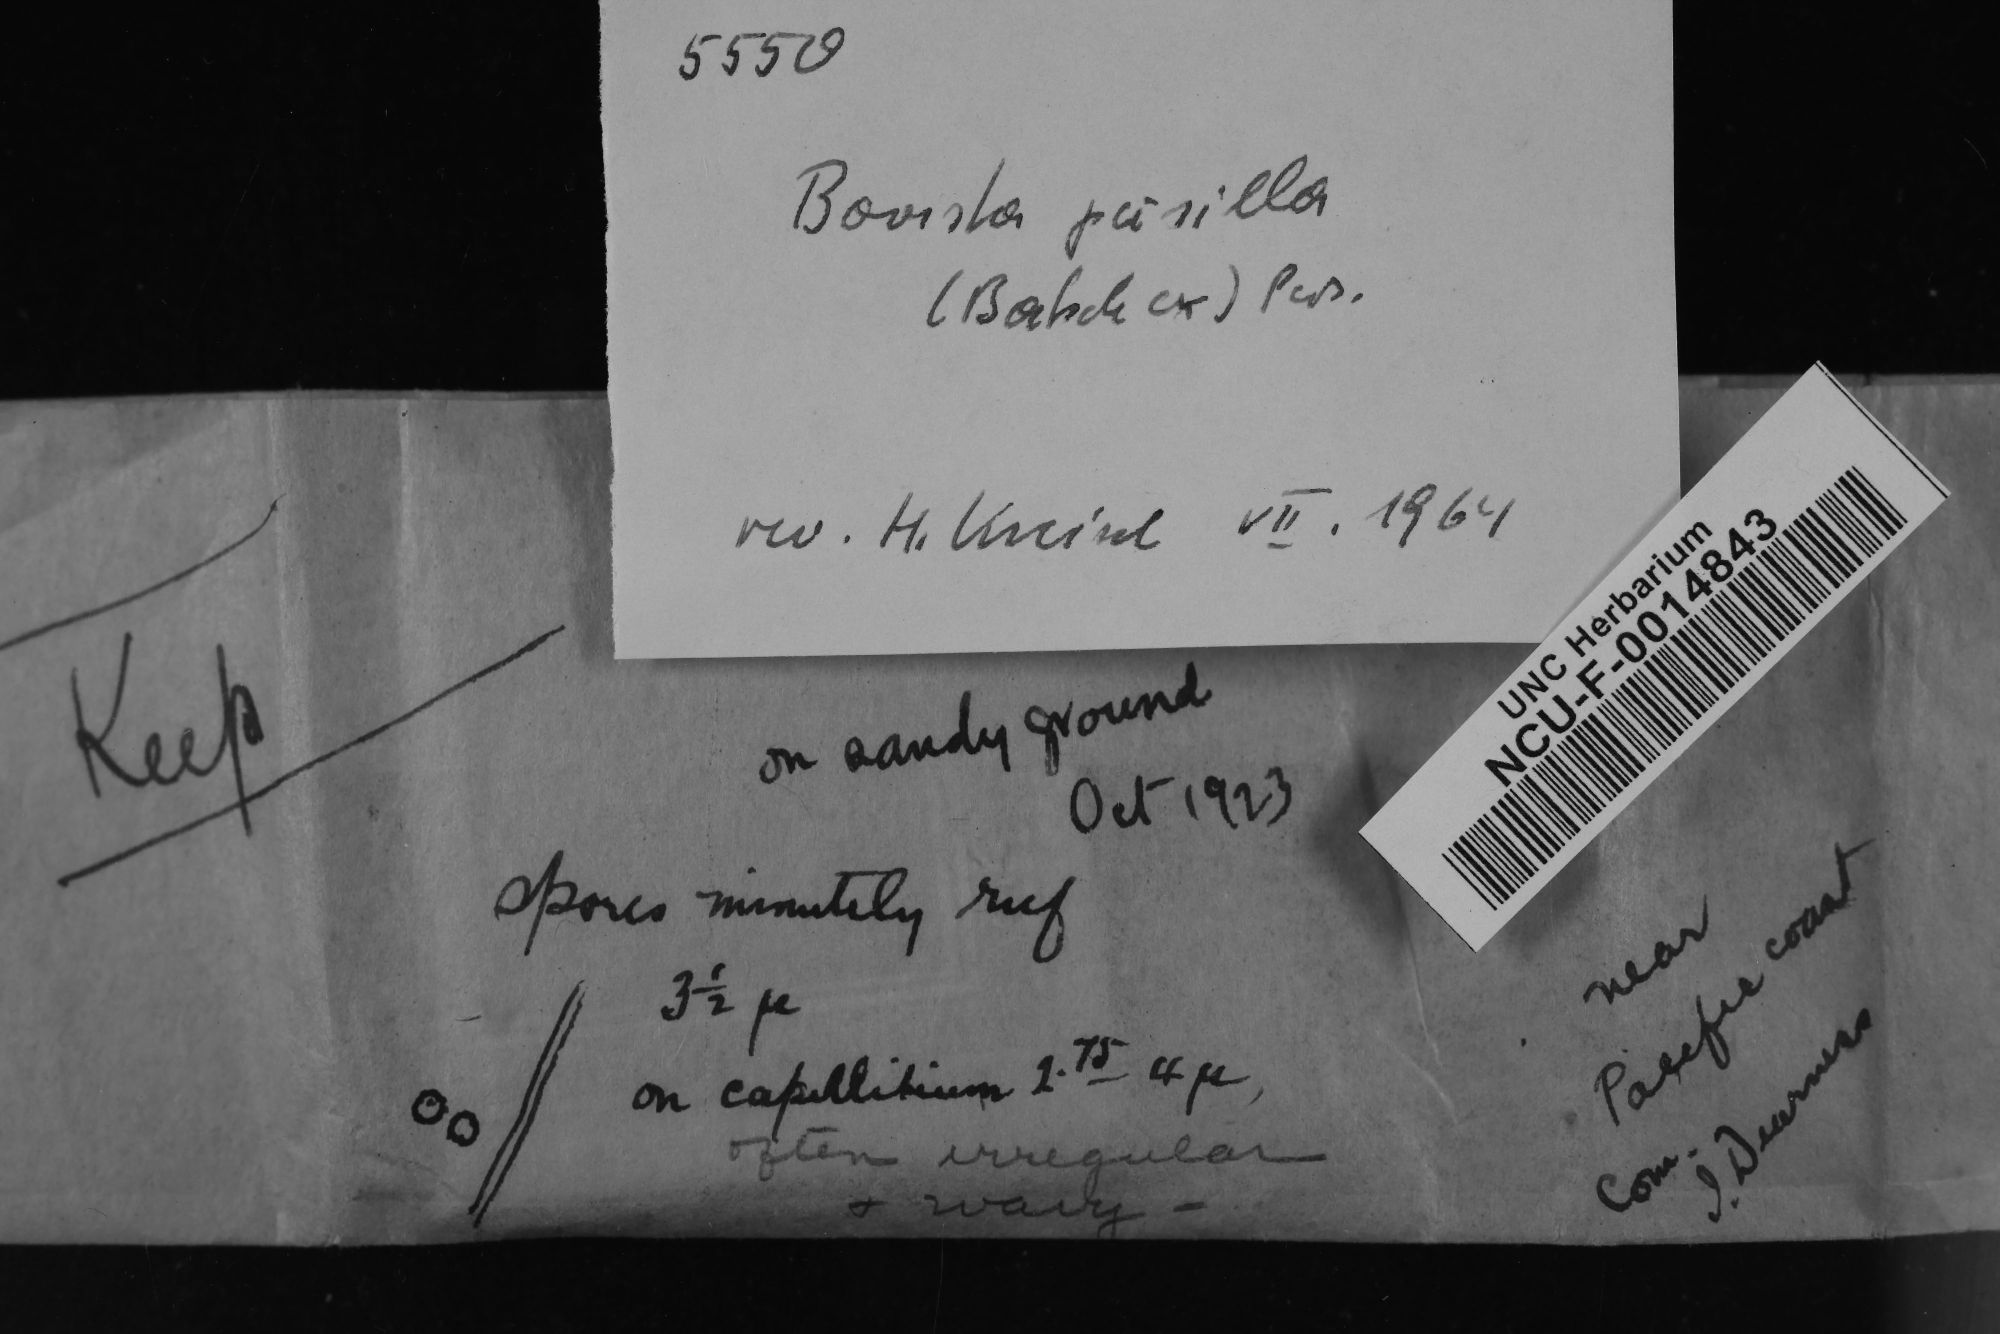 5550
Bovista pusilla
(Batsch ex) Pers.
rev. H. Kreisel VII. 1964
UNC Herbarium
NCU-F-0014843
Keep
on sandy ground
Oct 1923
spores minutely ruf
3 1/2 µ
on capellitium 2.75 4 µ,
often irregular
+ wavy -
near
Pacific coast
Com.
J. Dearness